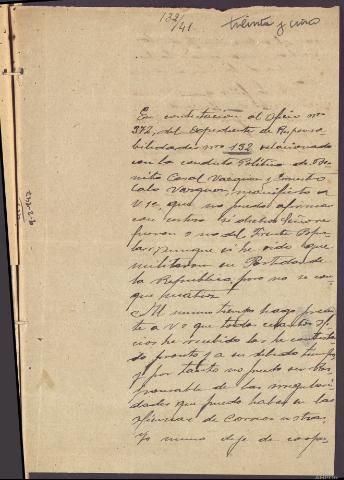 132/41
treinta y cinco
En contestación al Oficio nº
372, del Expediente de Responsa
bilidades nº 132 relacionado
con la conducta Politica de Be
nito Coral Vazquez y Ernesto
Calo Vazquez, manifiesto a
V.S. que no puedo afirmar
con certeza si dichos Señores
fueron o no del Frente Popu
lar, aunque si he oido que
militaron en Partidos de
la Republica pero no se con
que
Al mismo tiempo hago presen
te a V.S. que todos cuantos ofi
cios he recibido los he contesta
do pronto y a su debido tiempo
y por tanto no puedo ser res
ponsable de las irregulari
dades que pueda haber en las
oficinas de Correos
Yo nunca deje de cooper